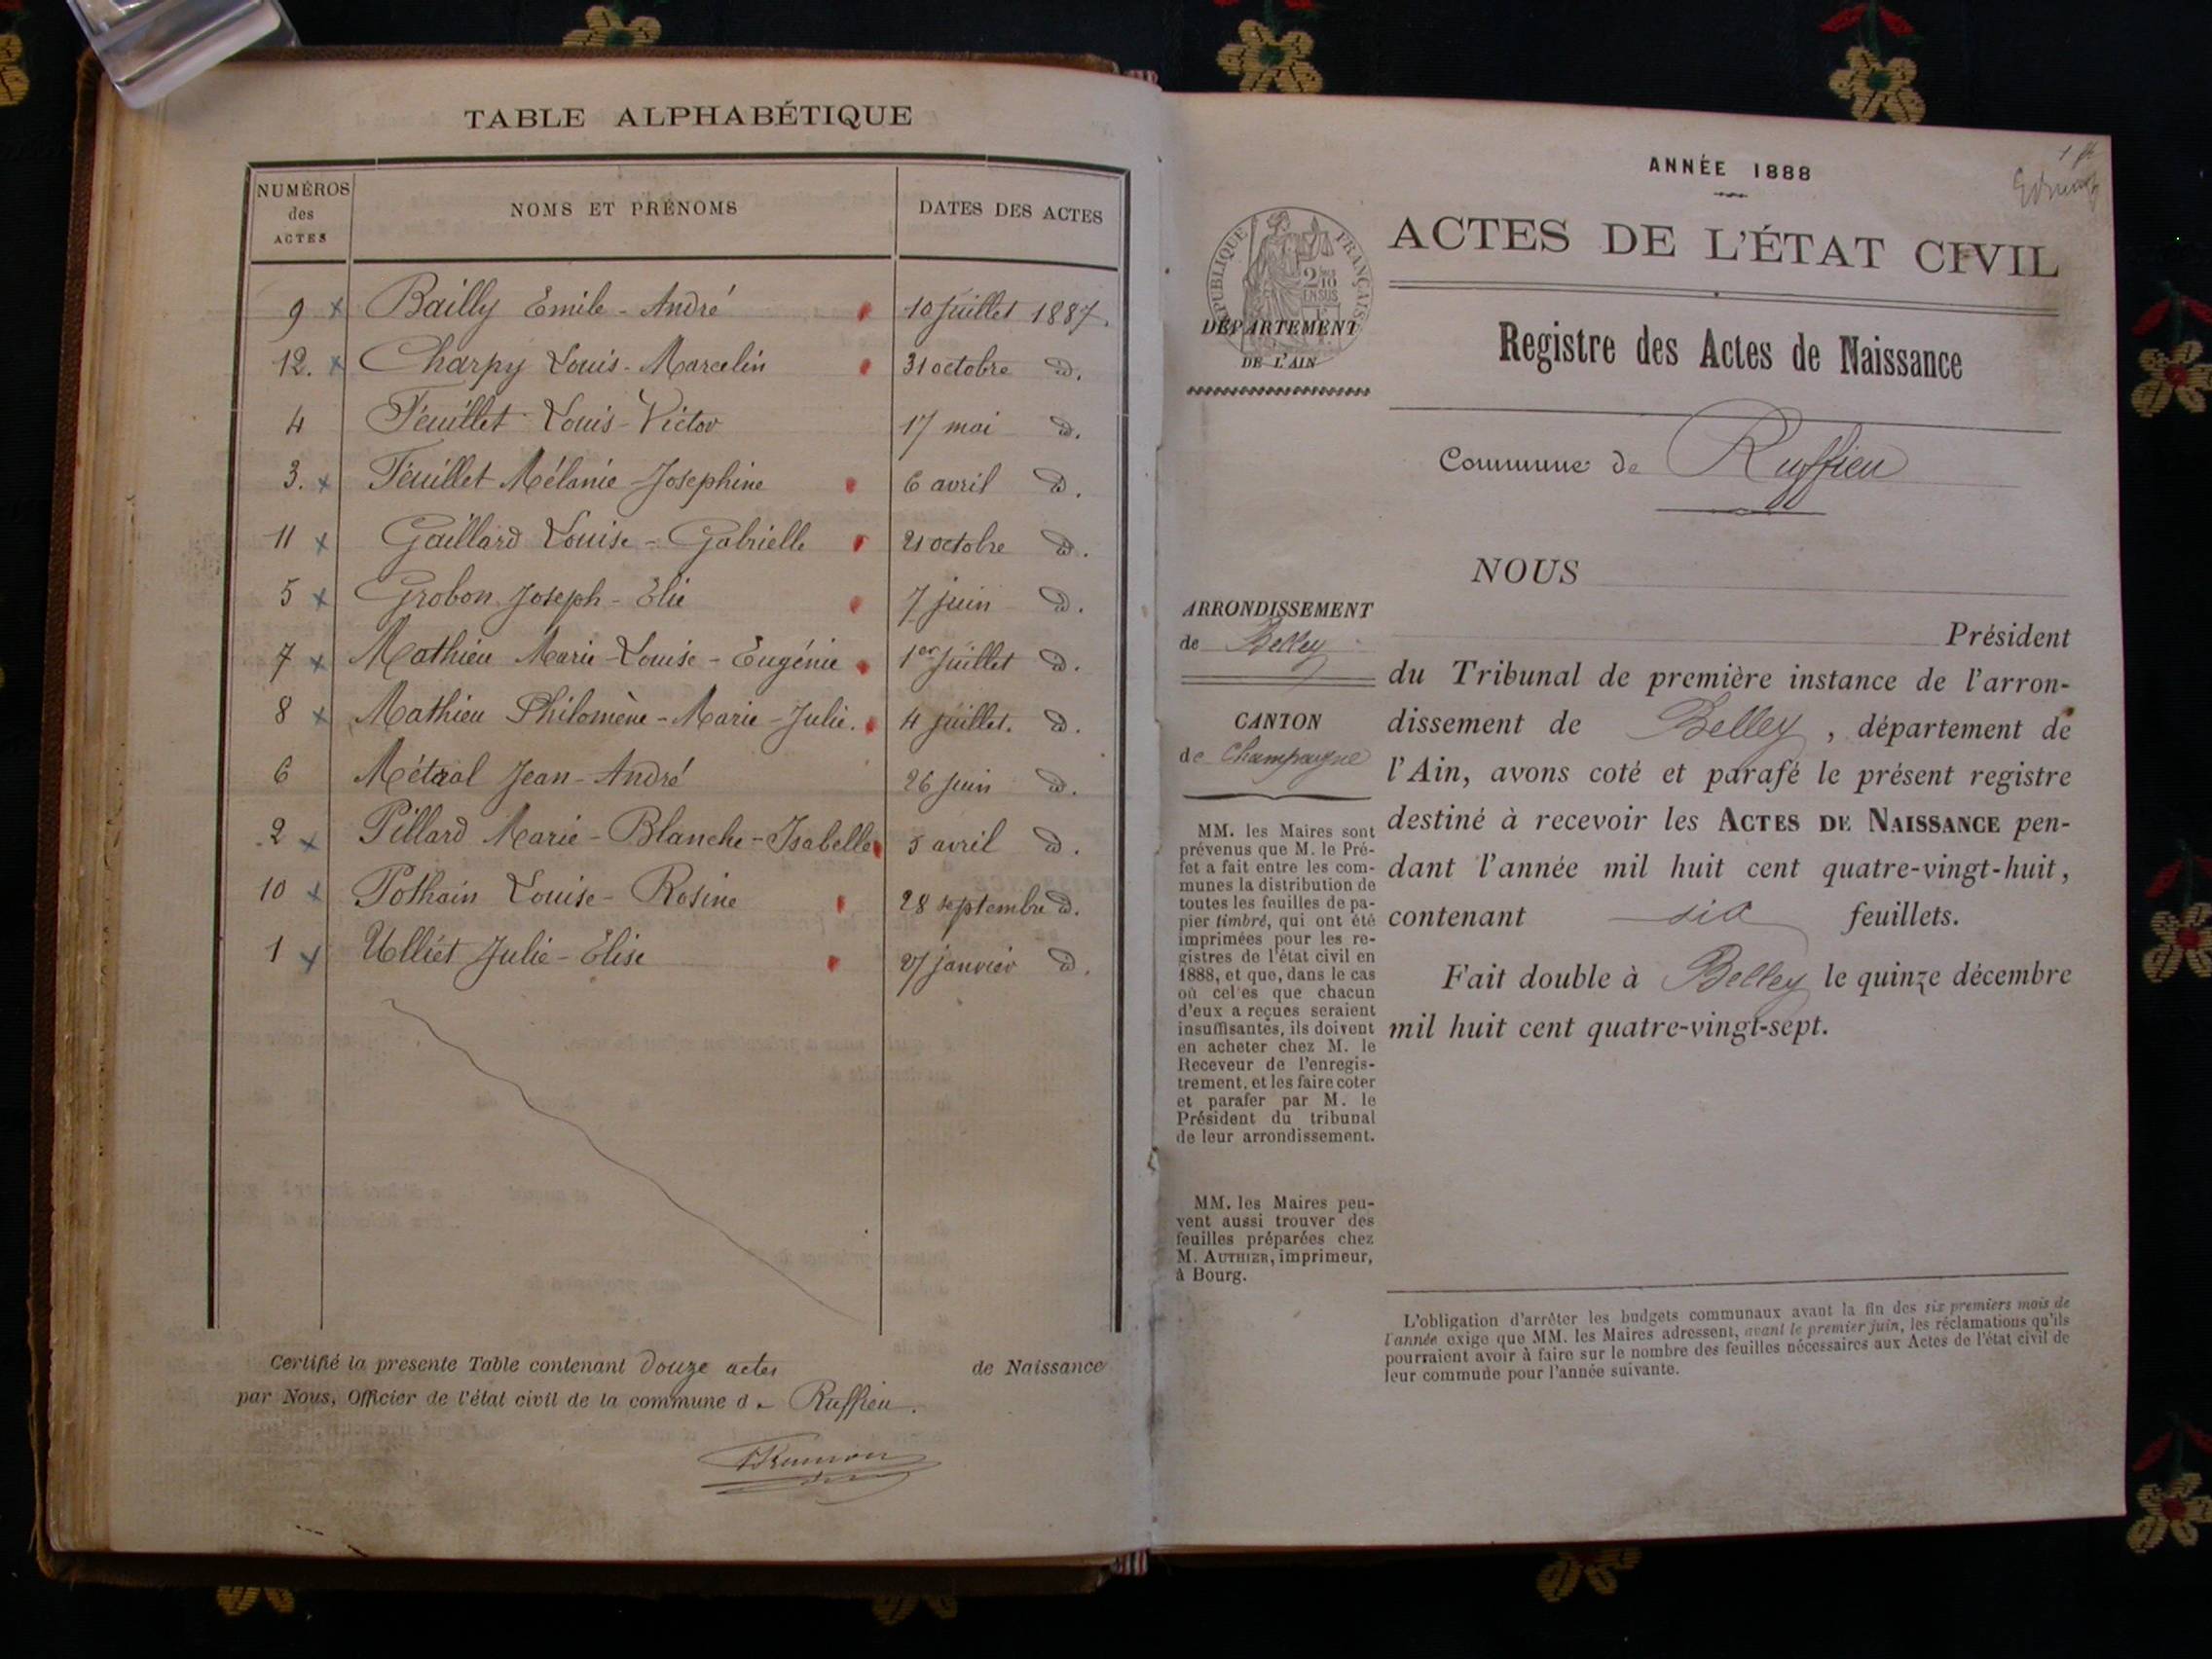 TABLE ALPHABÉTIQUE
NUMÉROS des ACTES
NOMS ET PRÉNOMS
DATES DES ACTES
9 x Bailly Emile - André 10 Juillet 1887.
12. x Charpy Louis - Marcelin 31 octobre d.
4 Feuillet Louis - Victor 17 mai d.
3. x Feuillet Mélanie Josephine 6 avril d.
11 x Gaillard Louise - Gabrielle 21 octobre d.
5 x Grobon Joseph - Elie 7 juin d.
7 x Mathieu Marie - Louise - Eugénie 1er Juillet d.
8 x Mathieu Philomène - Marie - Julie. 4 juillet. d.
6 Métral Jean - André 26 juin d.
2 x Pillard Marie - Blanche - Isabelle 5 avril d.
10 x Pothain Louise - Rosine 28 septembre d.
1 x Ulliet Julie - Elise 27 janvier d.
Certifié la présente Table contenant douze actes de Naissance
par Nous, Officier de l'état civil de la commune de Ruffieu.
ANNÉE 1888
ACTES DE L'ÉTAT CIVIL
RÉPUBLIQUE FRANÇAISE
2/10 EN SUS
DÉPARTEMENT
DE L'AIN
Registre des Actes de Naissance
Commune de Ruffieu
NOUS
ARRONDISSEMENT
de Belley
CANTON
de Champagne
Président
du Tribunal de première instance de l'arron-
dissement de Belley, département de
l'Ain, avons coté et parafé le présent registre
destiné à recevoir les ACTES DE NAISSANCE pen-
dant l'année mil huit cent quatre-vingt-huit,
contenant six feuillets.
Fait double à Belley le quinze décembre
mil huit cent quatre-vingt-sept.
MM. les Maires sont
prévenus que M. le Pré-
fet a fait entre les com-
munes la distribution de
toutes les feuilles de pa-
pier timbré, qui ont été
imprimées pour les re-
gistres de l'état civil en
1888, et que, dans le cas
où celles que chacun
d'eux a reçues seraient
insuffisantes, ils doivent
en acheter chez M. le
Receveur de l'enregis-
trement, et les faire coter
et parafer par M. le
Président du tribunal
de leur arrondissement.
MM. les Maires peu-
vent aussi trouver des
feuilles préparées chez
M. AUTHIER, imprimeur,
à Bourg.
L'obligation d'arrêter les budgets communaux avant la fin des six premiers mois de
l'année exige que MM. les Maires adressent, avant le premier juin, les réclamations qu'ils
pourraient avoir à faire sur le nombre des feuilles nécessaires aux Actes de l'état civil de
leur commune pour l'année suivante.